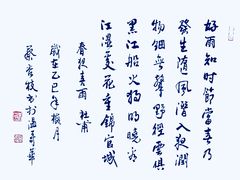 好雨知时節當春乃
發生随風潛入夜潤
物細無聲野徑雲俱
黑江船火獨明曉看
紅濕處花重錦官城
春夜喜雨 杜甫
歲在乙巳年榴月
蔡牧书於温哥華